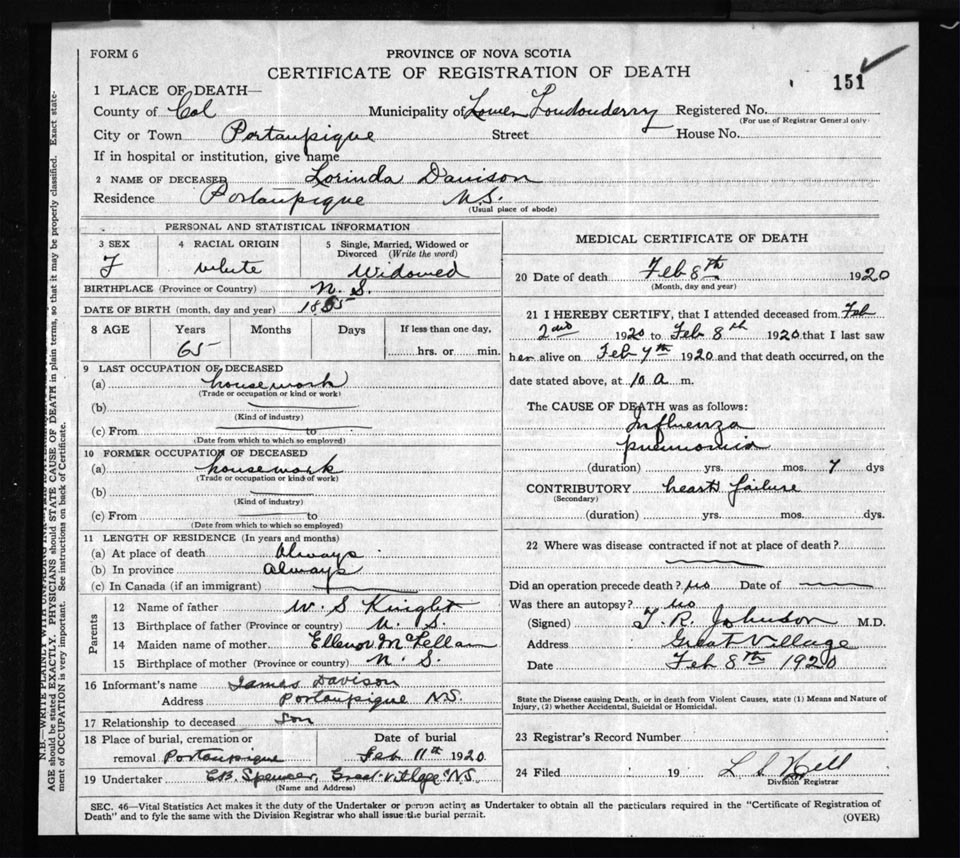 FORM 6
PROVINCE OF NOVA SCOTIA
CERTIFICATE OF REGISTRATION OF DEATH
151
1 PLACE OF DEATH—
County of Col Municipality of Lower Londonderry Registered No.
(For use of Registrar General only.
City or Town Portaupique Street House No.
If in hospital or institution, give name
2 NAME OF DECEASED Lorinda Davison
Residence Portaupique N.S.
(Usual place of abode)
PERSONAL AND STATISTICAL INFORMATION
3 SEX 4 RACIAL ORIGIN 5 Single, Married, Widowed or Divorced (Write the word)
F white Widowed
BIRTHPLACE (Province or Country) N. S.
DATE OF BIRTH (month, day and year) 1855
8 AGE Years Months Days If less than one day,
65 hrs. or min.
9 LAST OCCUPATION OF DECEASED
(a) housework
(Trade or occupation or kind or work)
(b)
(Kind of industry)
(c) From to
(Date from which to which so employed)
10 FORMER OCCUPATION OF DECEASED
(a) housework
(Trade or occupation or kind of work)
(b)
(Kind of industry)
(c) From to
(Date from which to which so employed)
11 LENGTH OF RESIDENCE (In years and months)
(a) At place of death Always
(b) In province always
(c) In Canada (if an immigrant)
Parents
12 Name of father W. S Knight
13 Birthplace of father (Province or country) N. S.
14 Maiden name of mother Ellenor McLellan
15 Birthplace of mother (Province or country) N. S.
16 Informant's name James Davison
Address Portaupique N.S.
17 Relationship to deceased Son
18 Place of burial, cremation or Date of burial
removal Portaupique Feb 11th 1920
19 Undertaker Spencer, Great Village N.S.
(Name and Address)
MEDICAL CERTIFICATE OF DEATH
20 Date of death Feb 8th 1920
(Month, day and year)
21 I HEREBY CERTIFY, that I attended deceased from Feb
2nd 1920 to Feb 8th 1920 that I last saw
her alive on Feb 7th 1920 and that death occurred, on the
date stated above, at 10 a m.
The CAUSE OF DEATH was as follows:
Influenza
pneumonia
(duration) yrs. mos. 7 dys
CONTRIBUTORY heart failure
(Secondary)
(duration) yrs. mos. dys.
22 Where was disease contracted if not at place of death?
Did an operation precede death? no Date of
Was there an autopsy? no
(Signed) T. R. Johnson M.D.
Address Great Village
Date Feb 8th 1920
State the Disease causing Death, or in death from Violent Causes, state (1) Means and Nature of
Injury, (2) whether Accidental, Suicidal or Homicidal.
23 Registrar's Record Number
24 Filed 19 L S Hill
Division Registrar
SEC. 46—Vital Statistics Act makes it the duty of the Undertaker or person acting as Undertaker to obtain all the particulars required in the "Certificate of Registration of
Death" and to fyle the same with the Division Registrar who shall issue the burial permit.
(OVER)
AGE should be stated EXACTLY. PHYSICIANS should STATE CAUSE OF DEATH in plain terms, so that it may be properly classified. Exact state-
ment of OCCUPATION is very important. See instructions on back of Certificate.